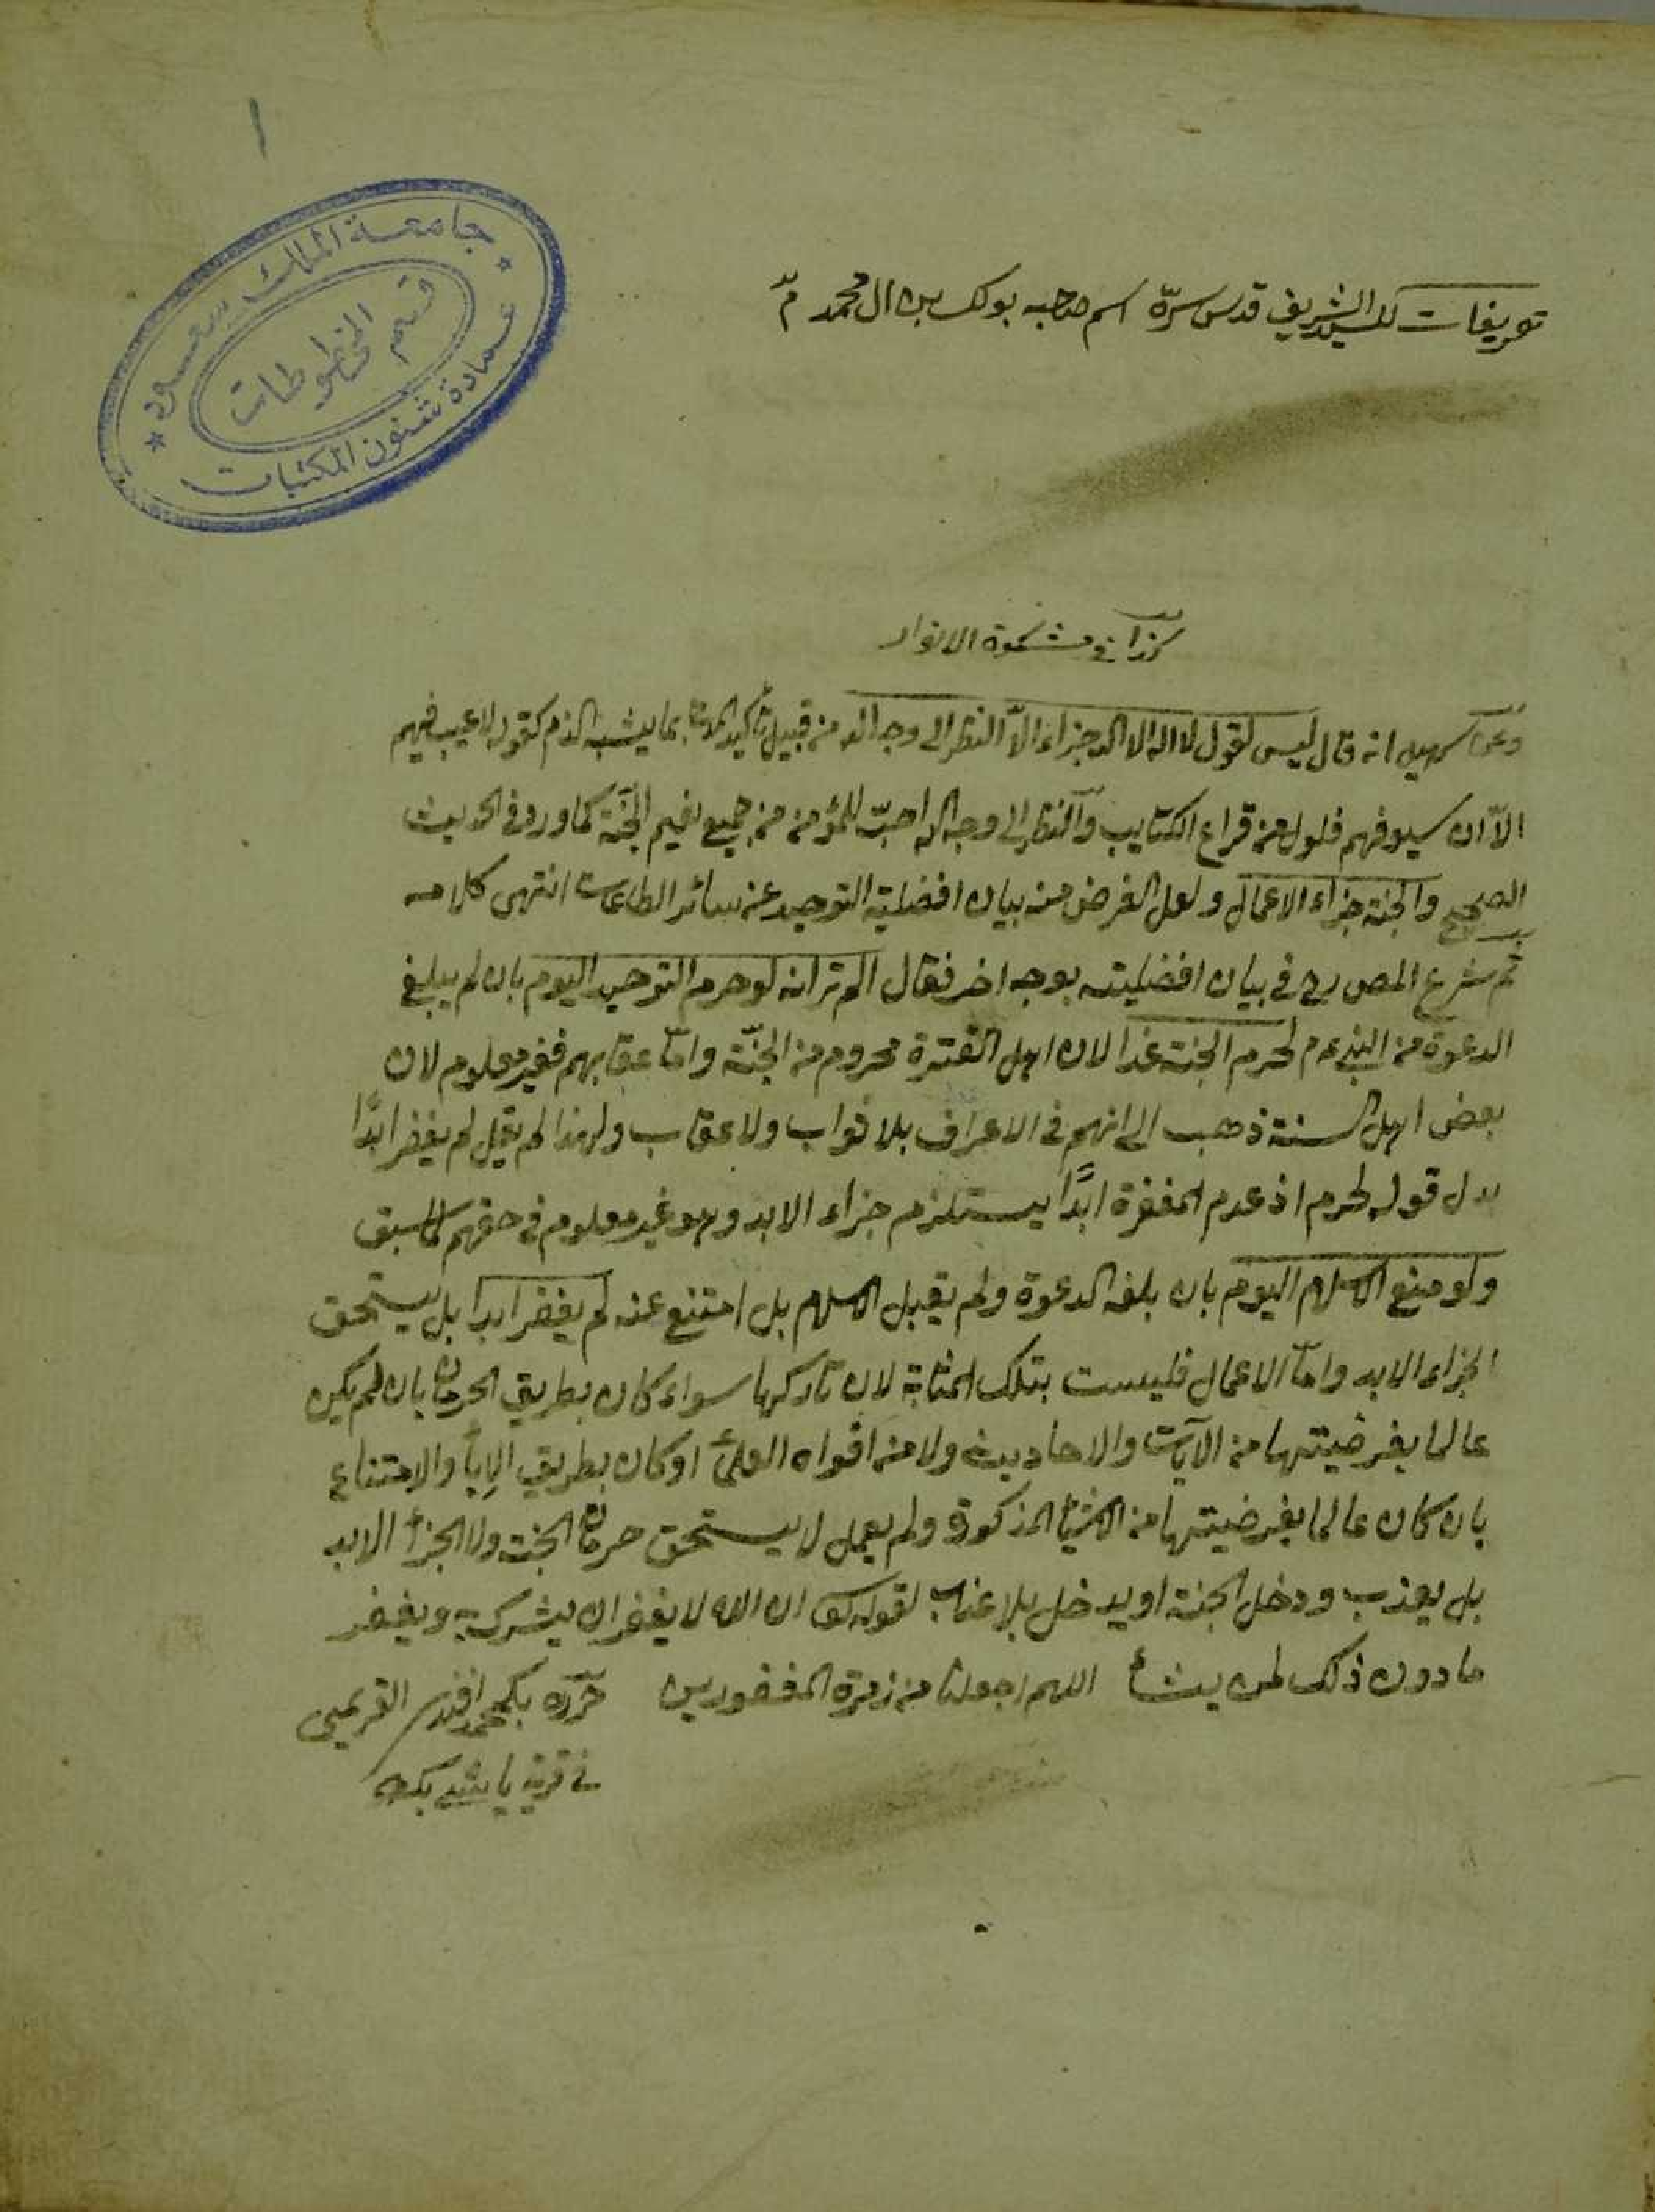 ١
جامعة الملك سعود
قسم المخطوطات
عمادة شئون المكتبات
تعريفات للسيد الشريف قدس سره اسم صاحبه بن ال محمد م
كذا في مشكوة الانوار
وعن سهيل انه قال ليس لقول لا اله الا الله جزاء الّا النظر الى وجه الله من قبيل تأكيد المدح بما يشبه الذم كقوله لا عيب فيهم
الّا ان سيوفهم فلول من قراع الكتايب والنظر الى وجه الله احبّ للمؤمن من جميع نعيم الجنّة كما ورد في الحديث
الصحيح والجنة جزاء الاعمال ولعل الغرض منه بيان افضلية التوحيد عن سائر الطاعات انتهى كلامه
ثم شرع المص رح في بيان افضليته بوجه اخر فقال الم تر انه لو حرم التوحيد اليوم بان لم يبلغ
الدعوة من النبي عم لحرم الجنة غدا لان اهل الفترة محروم من الجنّة وامّا عقابهم فغير معلوم لان
بعض اهل السنة ذهب الى انهم في الاعراف بلا ثواب ولا عقاب ولهذا لم يقل لم يغفر ابدًا
بدل قوله لحرم اذ عدم المغفرة ابدًا يستلزم جزاء الابد وهو غير معلوم في حقهم كما سبق
ولو منع الاسلام اليوم بان بلغه الدعوة ولم يقبل الاسلام بل امتنع عنه لم يغفر ابدا بل يستحق
الجزاء الابد وامّا الاعمال فليست بتلك المثابة لان تاركها سواء كان بطريق الحرمان بان لم يكن
عالما بفرضيتها من الآيات والاحاديث ولا من افواه العلمأ او كان بطريق الإبأ والامتناع
بان كان عالما بفرضيتها من المذكورة ولم يعمل لا يستحق حرمان الجنة ولا الجزأ الابد
بل يعذب ودخل الجنة او يدخل بلا عذاب لقوله تعا ان الله لا يغفر ان يشرك به ويغفر
ما دون ذلك لمن يشأ اللهم اجعلنا من زمرة المغفورين حرّره محمد افندى القريمى
في قرية